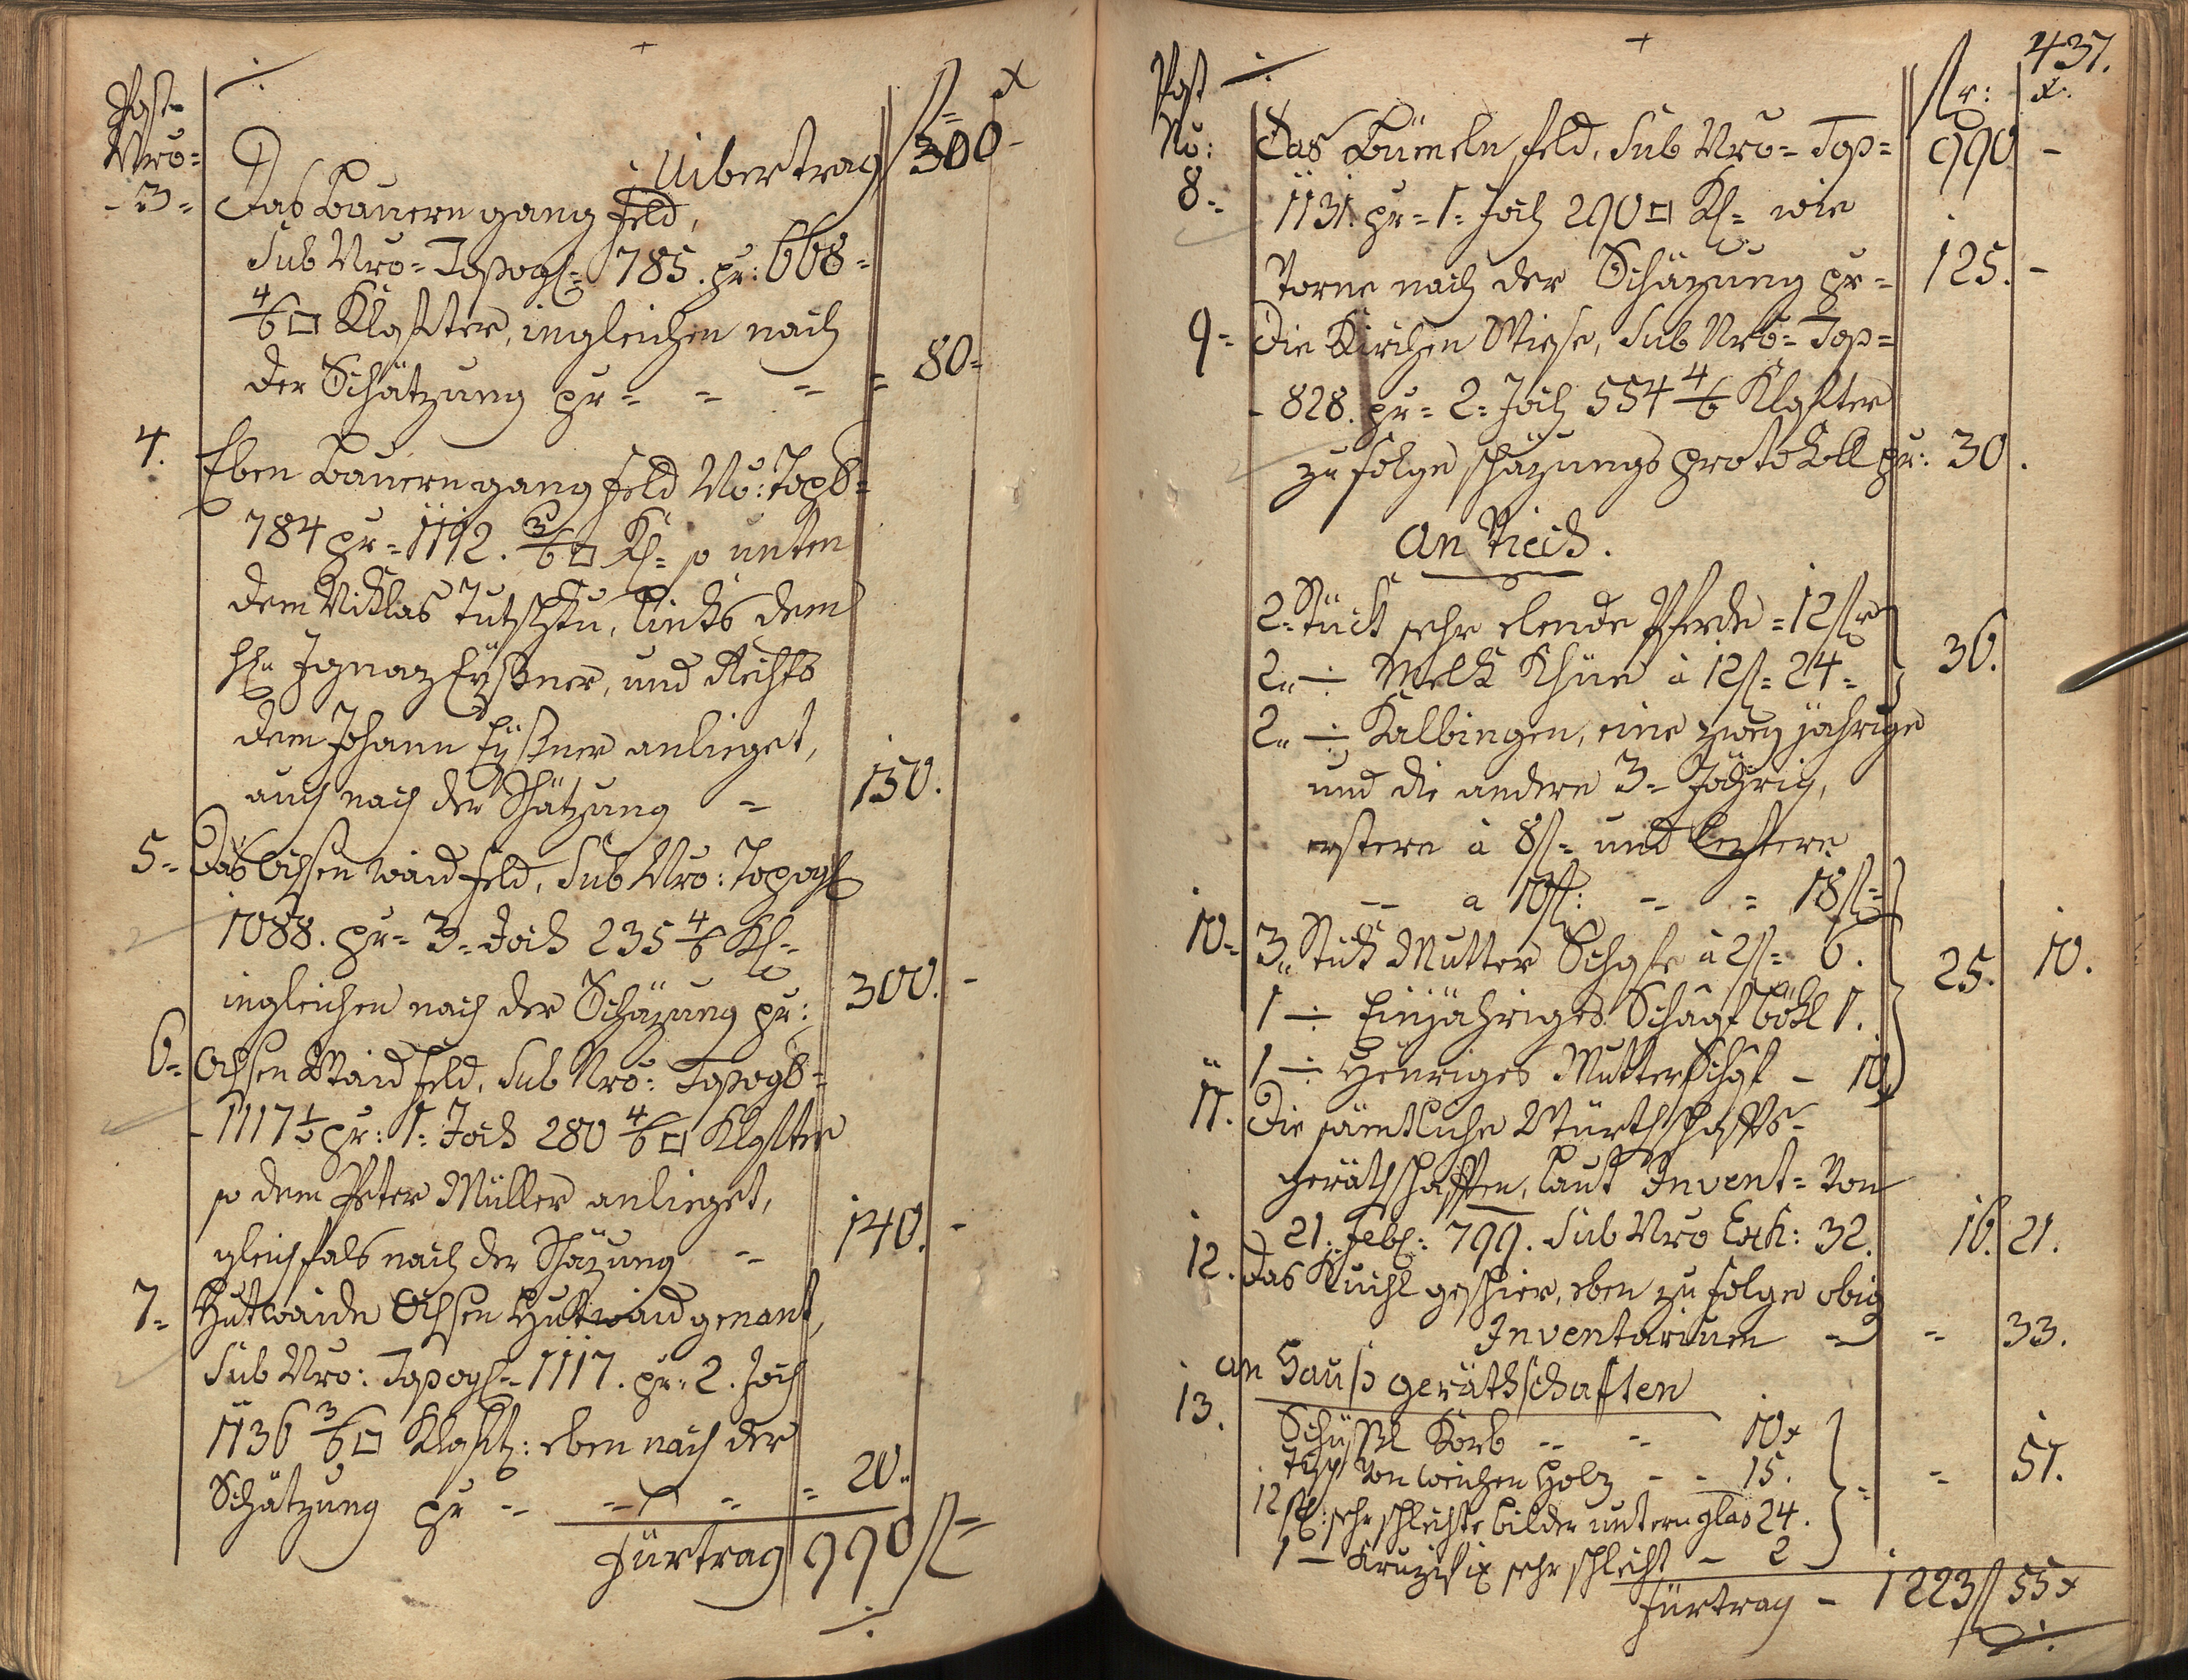 Post
Nro=
fl= x
Uibertrag 300 -
- 3= Das Bauerngang feld,
Sub Nro= Topogl= 785. pr: 668=
4/6 □ Klafter, ingleichen nach
der Schätzung pr= = = = 80=
4. Eben Bauerngang feld No: Topo=
784 pr= 1112. 3/6 □ Kl= so unten
dem Niklas, links dem
H. Ignaz Eyßner, und Rechts
dem Johann Eyßner anlieget,
auch nach der Schätzung = 150.
5= Das Ochsen waid feld, Sub Nro: Topogl
1088. pr= 3= Joch 235 4/6 Kl=
ingleichen nach der Schäzung pr: 300. -
6= Ochsen Waid feld, Sub Nro: Topog=
- 1117 1/2 pr: 1= Joch 280 4/6 □ Klafter
so dem Peter Müller anlieget,
gleichfals nach der Schäzung = 140. -
7= Hutwaide Ochsen Hutwaid genant,
Sub Nro: Topogl= 1117. pr= 2. Joch
1136 3/6 □ Klaft: eben nach der
Schätzung pr = = = = 20=
Fürtrag 990 fl=
437.
Post
No:
flr: x.
990 -
8= Das feld, Sub Nro= Top=
1131. pr= 1= Joch 290 □ Kl= wie
Vorne nach der Schäzung pr= 125. -
9= Die Kirchen Wiese, Sub Nro= Top=
- 828. pr= 2= Joch 554 4/6 Klafter
zu folge schäzungs protokoll pr: 30.
An Viech.
2= Stück sehr elende Pferde = 12 flr
2= ÷ Melk Khüe à 12 fl= 24= 36.
2= ÷ Kalbingen, eine zwey jährige
und die andere 3= Jährig,
erstere à 8 fl= und leztere
-- a 10 fl: = = 18 fl=
10= 3= Stük Mutter Schafe à 2 fl= 6. 25. 10.
1 ÷ Einjähriges Schaaf bökl 1.
1 ÷ Heuriges Mutterschaf - 10
11. Die sämtliche Würthschaffts=
geräthschafften, laut Invent= Von
21. Feb: 799. Sub Nro Exh: 32. 16. 21.
12. Das Kuchl geschier, eben zu folge obig
Inventarium = = 33.
13. an Hauß geräthschaften
Schüßl Korb = = 10 x
Tisch Von weichen Holz - - 15. = 51.
12 st: sehr schlechte bilder untern glas 24.
1 - Kruzifix sehr schlecht - 2
Fürtrag - 1223 fl 55 x